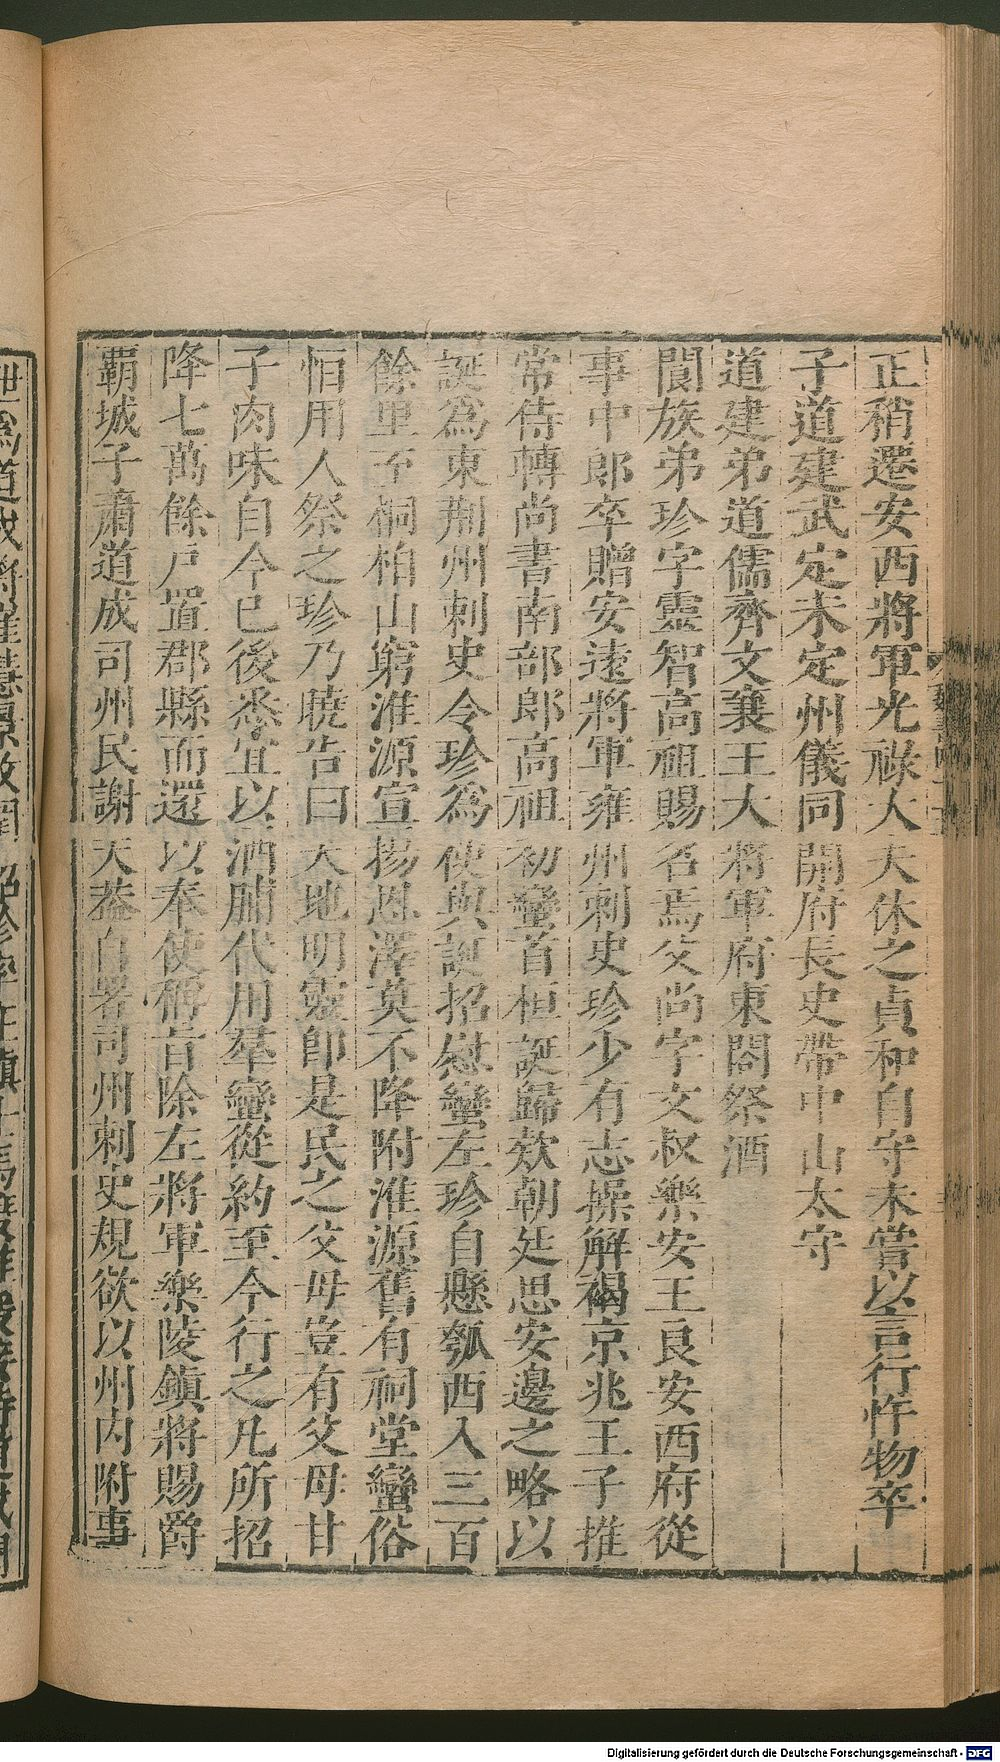 正稍遷安西將軍光祿大夫休之貞和自守未嘗以言行忤物卒
子道建武定末定州儀同開府長史帶中山太守
道建弟道儒齊文襄王大將軍府東閤祭酒
閬族弟珍字靈智高祖賜名焉父尚字文叔樂安王良安西府從
事中郎卒贈安遠將軍雍州刺史珍少有志操解褐京兆王子推
常侍轉尚書南部郎高祖初蠻首桓誕歸款朝廷思安邊之略以
誕爲東荆州刺史令珍爲使與誕招慰蠻左珍自懸瓠西入三百
餘里至桐柏山窮淮源宣揚恩澤莫不降附淮源舊有祠堂蠻俗
恒用人祭之珍乃曉告曰天地明靈即是民之父母豈有父母甘
子肉味自今已後悉宜以酒脯代用羣蠻從約至今行之凡所招
降七萬餘戶置郡縣而還以奉使稱旨除左將軍樂陵鎮將賜爵
覇城子蕭道成司州民謝天葢自署司州刺史規欲以州內附事
Digitalisierung gefördert durch die Deutsche Forschungsgemeinschaft - DFG